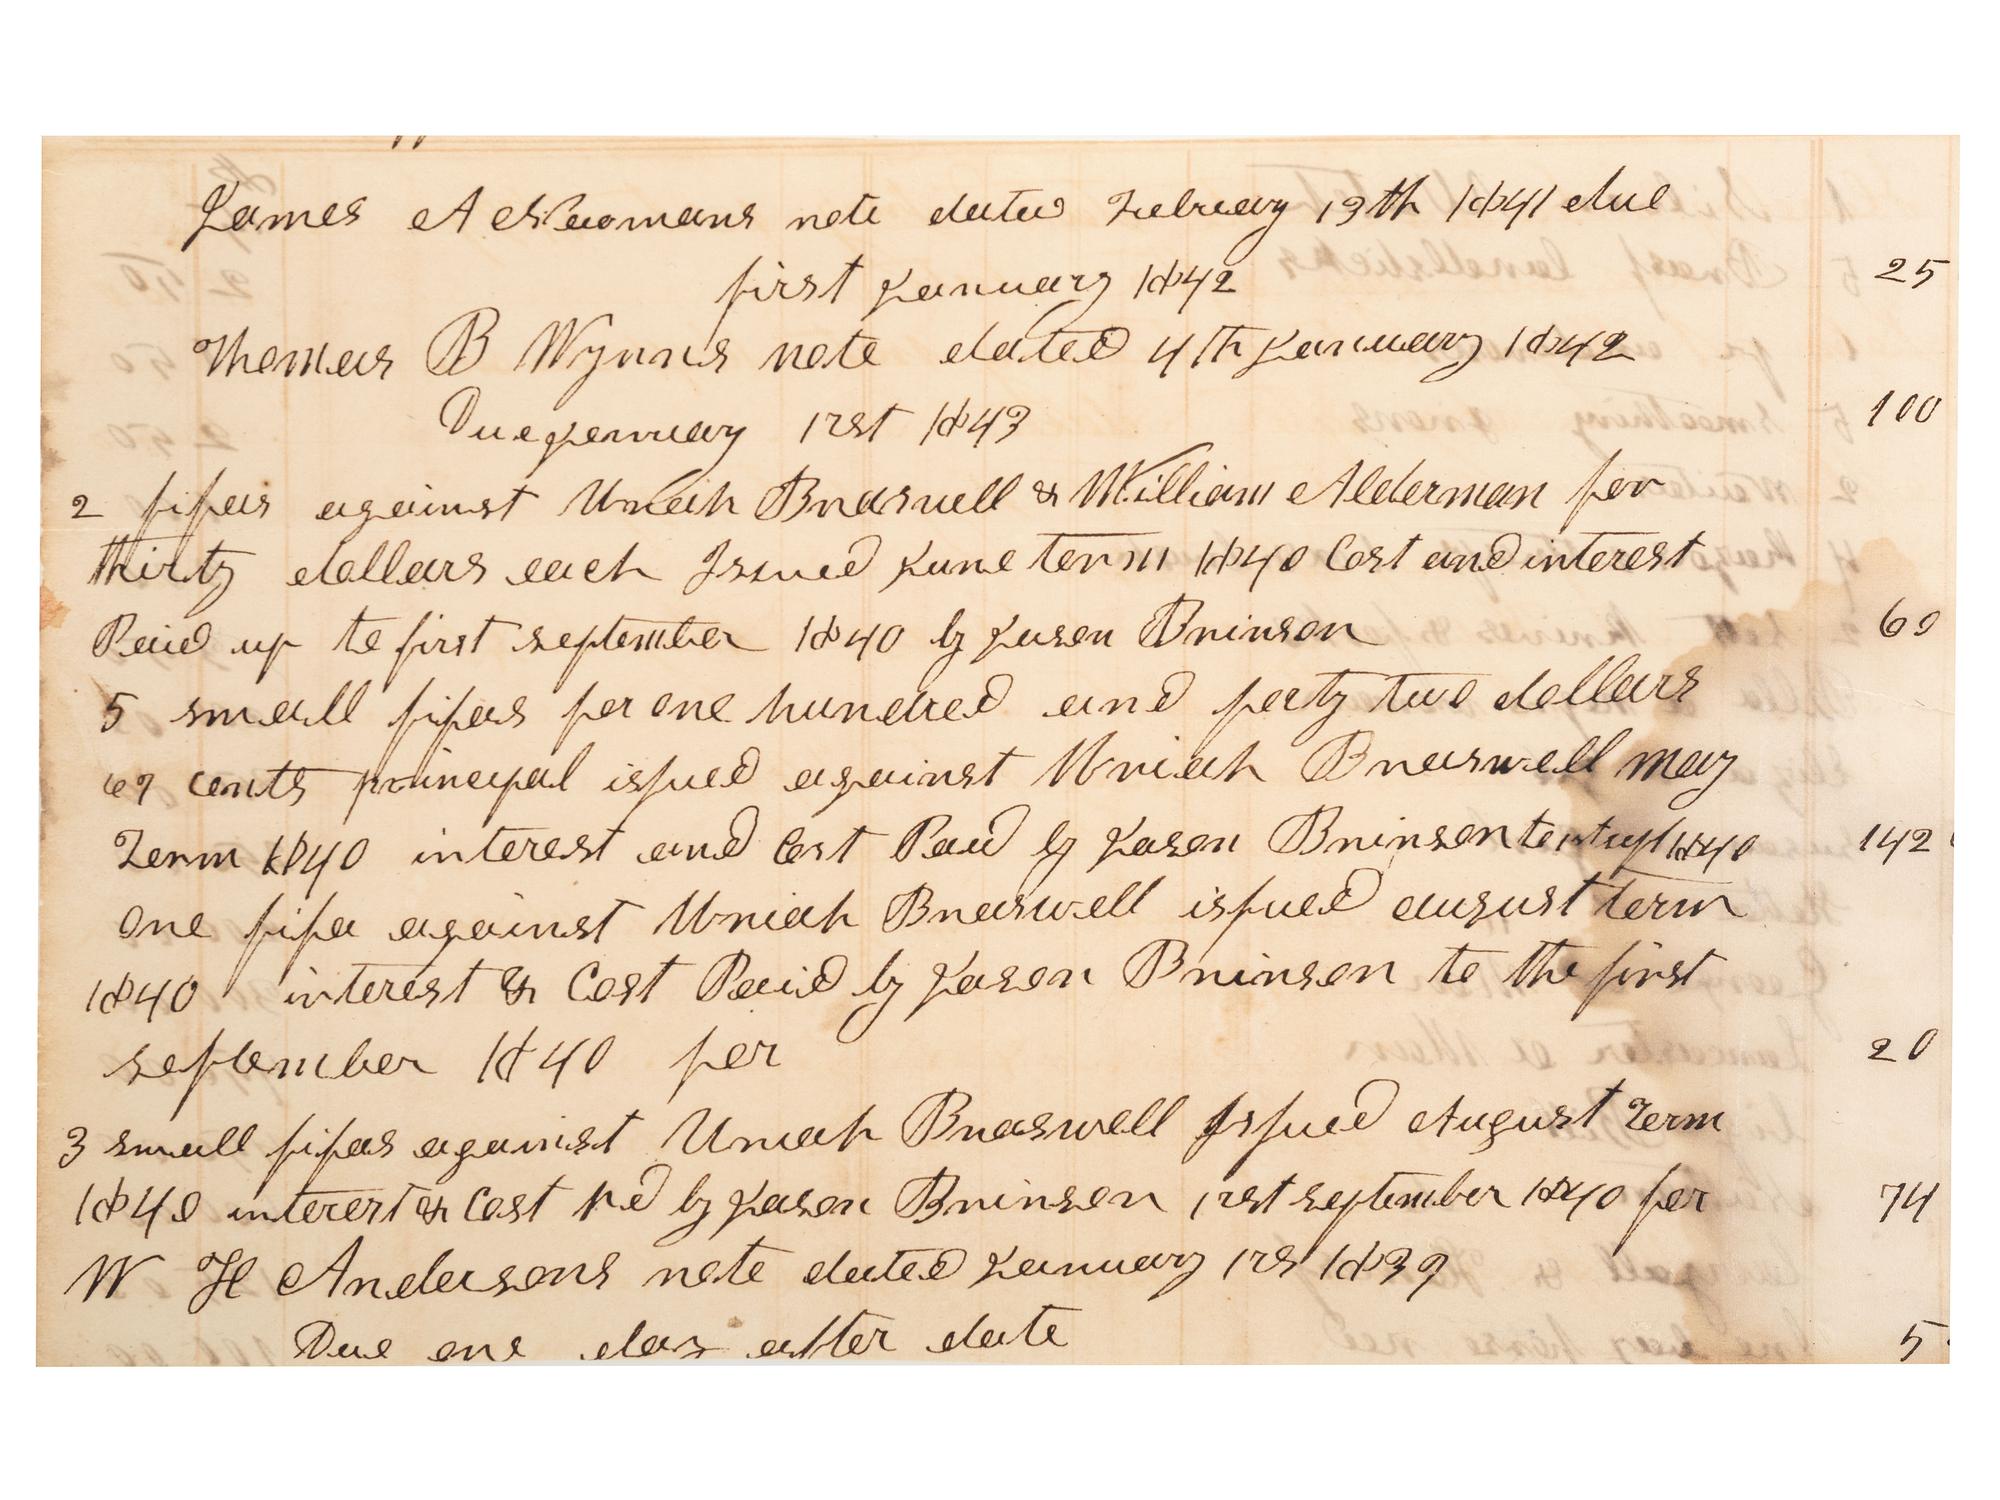 James A Yeomans note dated February 19th 1841 due
first January 1842 25
Thomas B Wynns note dated 4th January 1842
Due January 1rst 1843 100
2 fifas against Uriah Braswell & William Alderman for
thirty dollars each Issued June term 1840 Cost and interest
Paid up to first september 1840 by Jason Brinson 60
5 small fifas for one hundred and forty two dollars
69 cents principal issued against Uriah Braswell may
Term 1840 interest and Cost Paid by Jason Brinson to 1840 142
One fifa against Uriah Braswell issued august term
1840 interest & Cost Paid by Jason Brinson to the first
september 1840 for 20
3 small fifas against Uriah Braswell Issued August Term
1840 interest & Cost Pd by Jason Brinson 1rst september 1840 for 74
W H Andersons note dated January 1rs 1839
Due one day after date 5